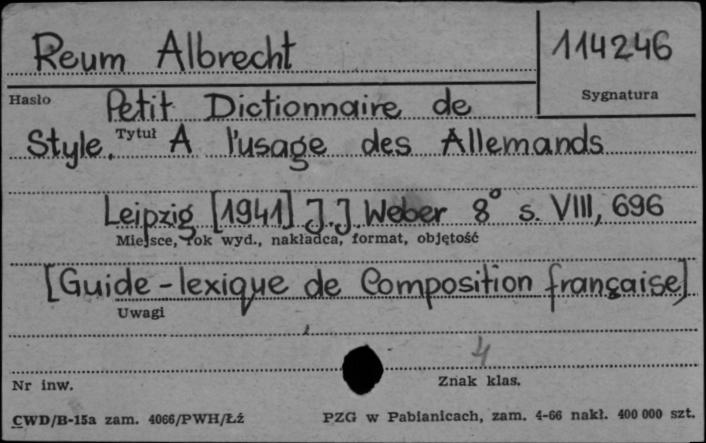 Reum Albrecht
114246
Hasło
Sygnatura
Petit Dictionnaire de
Tytuł
Style. A l'usage des Allemands
Leipzig [1941] J.J. Weber 8° s. VIII, 696
Miejsce, rok wyd., nakładca, format, objętość
[Guide-lexique de Composition française]
Uwagi
4
Nr inw.
Znak klas.
CWD/B-15a zam. 4066/PWH/Łź
PZG w Pabianicach, zam. 4-66 nakł. 400 000 szt.